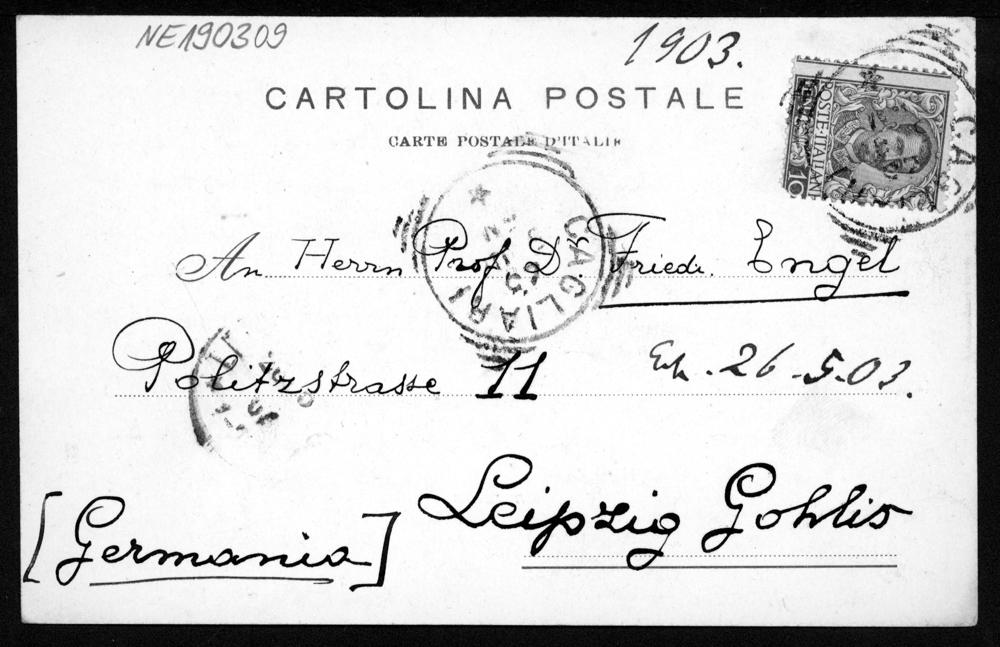 NE190309
1903.
CARTOLINA POSTALE
CARTE POSTALE D'ITALIE
POSTE ITALIANE
10
CAGLIARI
An Herrn Prof. Dr. Friedr. Engel
Politzstrasse 11
26.5.03.
Leipzig Gohlis
[Germania]